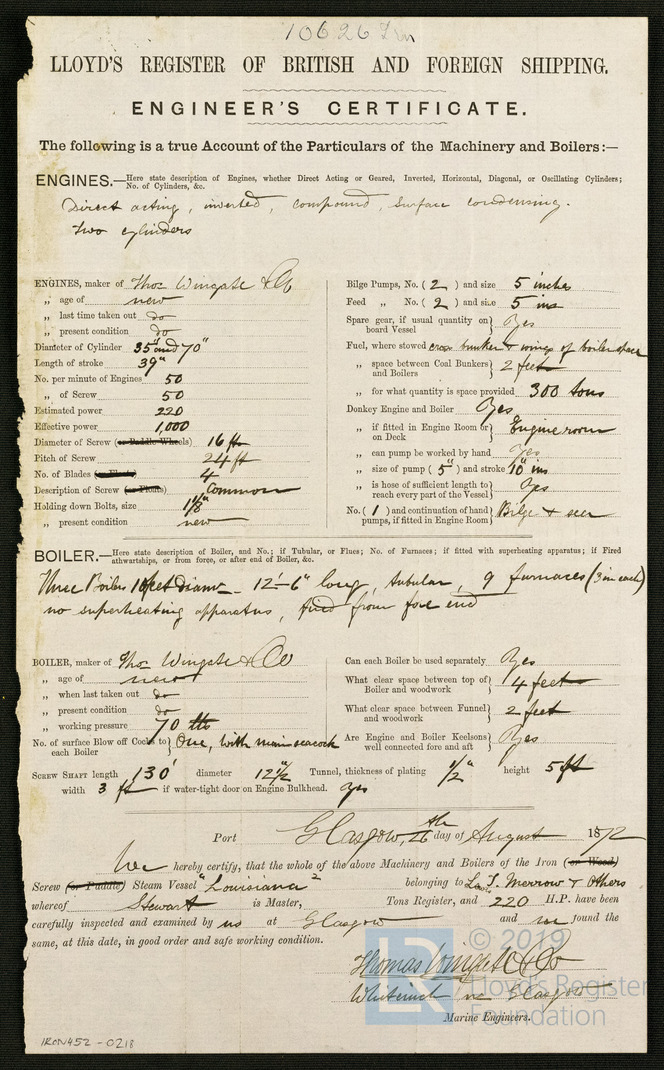 10626 Irn
LLOYD'S REGISTER OF BRITISH AND FOREIGN SHIPPING.
ENGINEER'S CERTIFICATE.
The following is a true Account of the Particulars of the Machinery and Boilers:—
ENGINES.—Here state description of Engines, whether Direct Acting or Geared, Inverted, Horizontal, Diagonal, or Oscillating Cylinders;
No. of Cylinders, &c.
Direct acting, inverted, compound, surface condensing.
two cylinders
ENGINES, maker of Thos Wingate & Co
„ age of new
„ last time taken out do
„ present condition do
Diameter of Cylinder 35" and 70"
Length of stroke 39"
No. per minute of Engines 50
„ of Screw 50
Estimated power 220
Effective power 1,000
Diameter of Screw (or Paddle Wheels) 16 ft
Pitch of Screw 24 ft
No. of Blades 4
Description of Screw (or Floats) Common
Holding down Bolts, size 1 1/8"
„ present condition new
Bilge Pumps, No. ( 2 ) and size 5 inches
Feed „ No. ( 2 ) and size 5 ins
Spare gear, if usual quantity on
board Vessel } Yes
Fuel, where stowed cross bunker & wings of boiler space
„ space between Coal Bunkers
and Boilers } 2 feet
„ for what quantity is space provided 300 tons
Donkey Engine and Boiler Yes
„ if fitted in Engine Room or
on Deck } Engine room
„ can pump be worked by hand Yes
„ size of pump ( 5" ) and stroke 10" ins
„ is hose of sufficient length to
reach every part of the Vessel } Yes
No. ( 1 ) and continuation of hand
pumps, if fitted in Engine Room } Bilge &
BOILER.—Here state description of Boiler, and No.; if Tubular, or Flues; No. of Furnaces; if fitted with superheating apparatus; if Fired
athwartships, or from fore, or after end of Boiler, &c.
Three Boilers 16 feet diamr - 12'-6" long, tubular, 9 furnaces (3 in each)
no superheating apparatus, fired from fore end
BOILER, maker of Thos Wingate & Co
„ age of new
„ when last taken out do
„ present condition do
„ working pressure 70 lbs
No. of surface Blow off Cocks to
each Boiler } One, with main seacock
Can each Boiler be used separately Yes
What clear space between top of
Boiler and woodwork } 4 feet
What clear space between Funnel
and woodwork } 2 feet
Are Engine and Boiler Keelsons
well connected fore and aft } Yes
SCREW SHAFT length 130' diameter 12 1/2" Tunnel, thickness of plating 1/2" height 5 ft
width 3 ft if water-tight door on Engine Bulkhead. Yes
Port Glasgow, 26th day of August 1872
We hereby certify, that the whole of the above Machinery and Boilers of the Iron (or Wood)
Screw (or Paddle) Steam Vessel "Louisiana" belonging to Morrow & Others
whereof Stewart is Master, Tons Register, and 220 H.P. have been
carefully inspected and examined by us at Glasgow and we found the
same, at this date, in good order and safe working condition.
Thomas Wingate & Co
Whiteinch nr Glasgow
Marine Engineers.
IRON452-0218
LR
© 2019
Lloyd's Register
Foundation